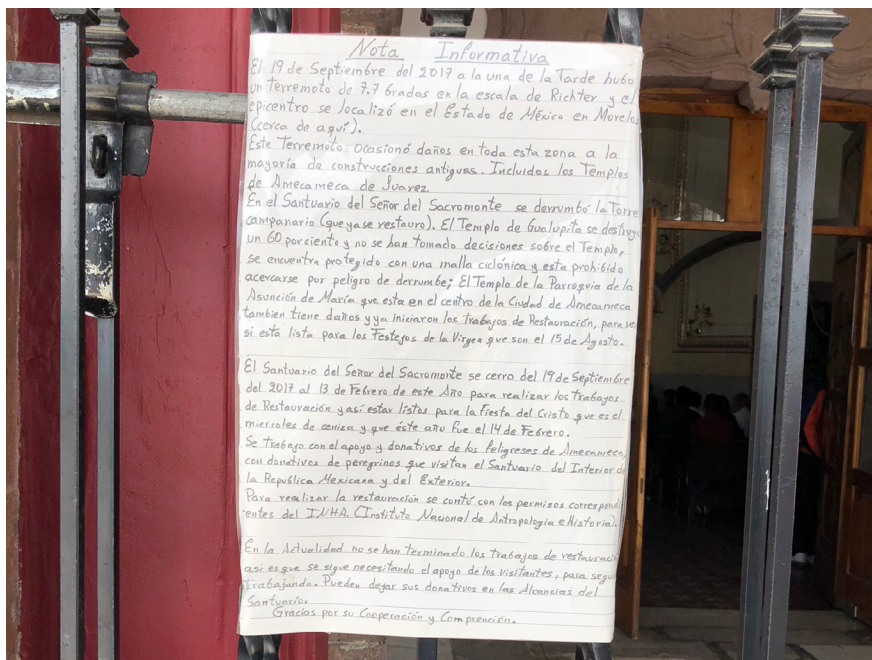 Nota Informativa
El 19 de Septiembre del 2017 a la una de la Tarde hubo
un terremoto de 7.7 Grados en la escala de Richter y el
epicentro se localizó en el Estado de México en Morelos
(cerca de aquí).
Este Terremoto ocasionó daños en toda esta zona a la
mayoría de construcciones antiguas. Incluidos los Templos
de Amecameca de Juarez.
En el Santuario del Señor del Sacromonte se derrumbó la Torre
campanario (que ya se restauro). El Templo de Gualupita se destruyo
un 60 porciento y no se han tomado decisiones sobre el Templo,
se encuentra protegido con una malla ciclónica y esta prohibido
acercarse por peligro de derrumbe; El Templo de la Parroquia de la
Asunción de María que esta en el centro de la Ciudad de Amecameca
tambien tiene daños y ya iniciaron los trabajos de Restauración, para ver
si esta lista para los Festejos de la Virgen que son el 15 de Agosto.
El Santuario del Señor del Sacromonte se cerro del 19 de Septiembre
del 2017 al 13 de Febrero de este Año para realizar los trabajos
de Restauración y así estar listos para la Fiesta del Cristo que es el
miercoles de ceniza y que éste año fue el 14 de Febrero.
Se trabajo con el apoyo y donativos de los Feligreses de Amecameca,
con donativos de peregrinos que visitan el Santuario del Interior de
la Republica Mexicana y del Exterior.
Para realizar la restauración se contó con los permisos correspondi
entes del INHA. (Instituto Nacional de Antropología e Historia).
En la Actualidad no se han terminado los trabajos de restauraci
así es que se sigue necesitando el apoyo de los visitantes, para segui
trabajando. Pueden dejar sus donativos en las Alcancias del
Santuario.
Gracias por su Cooperación y Comprención.